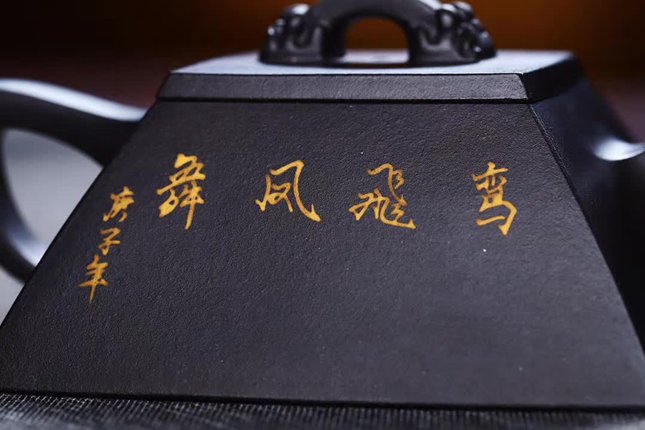 鸾飛凤舞
庚子年